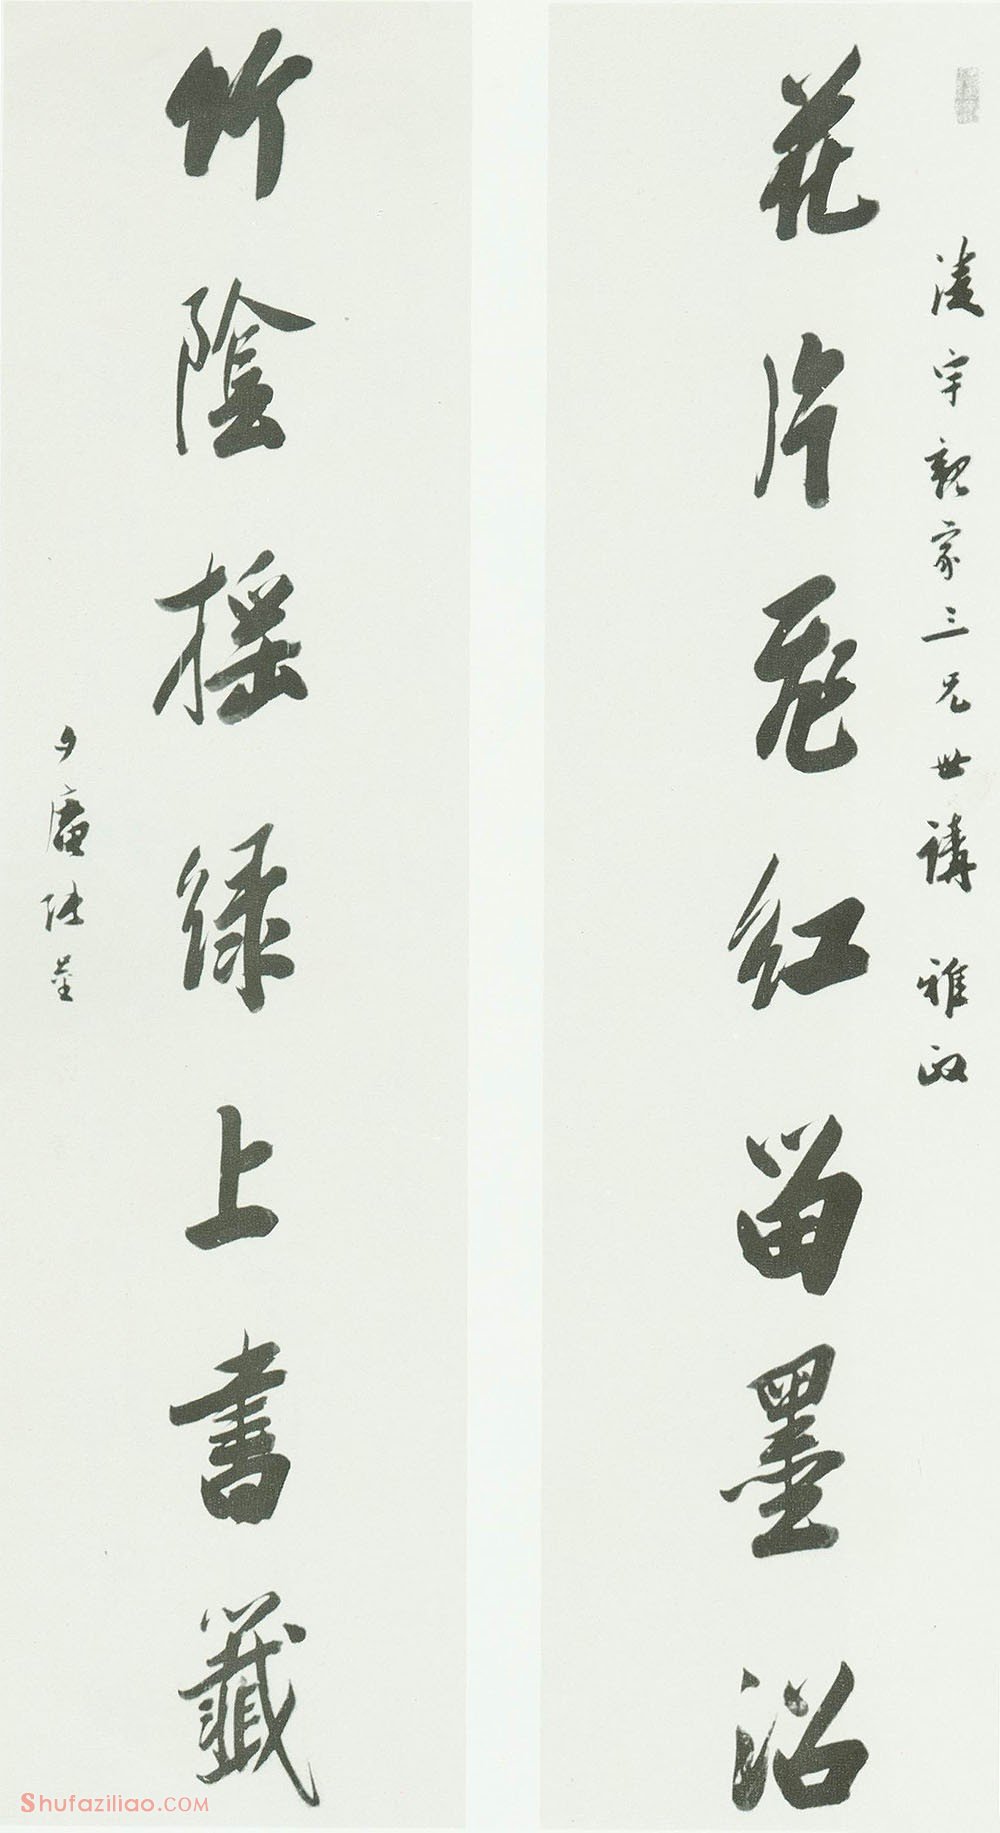 宇親家三兄世講 雅政
花片飛紅留墨沼
竹陰搖綠上書籤
夕庵張崟
Shufaziliao.COM